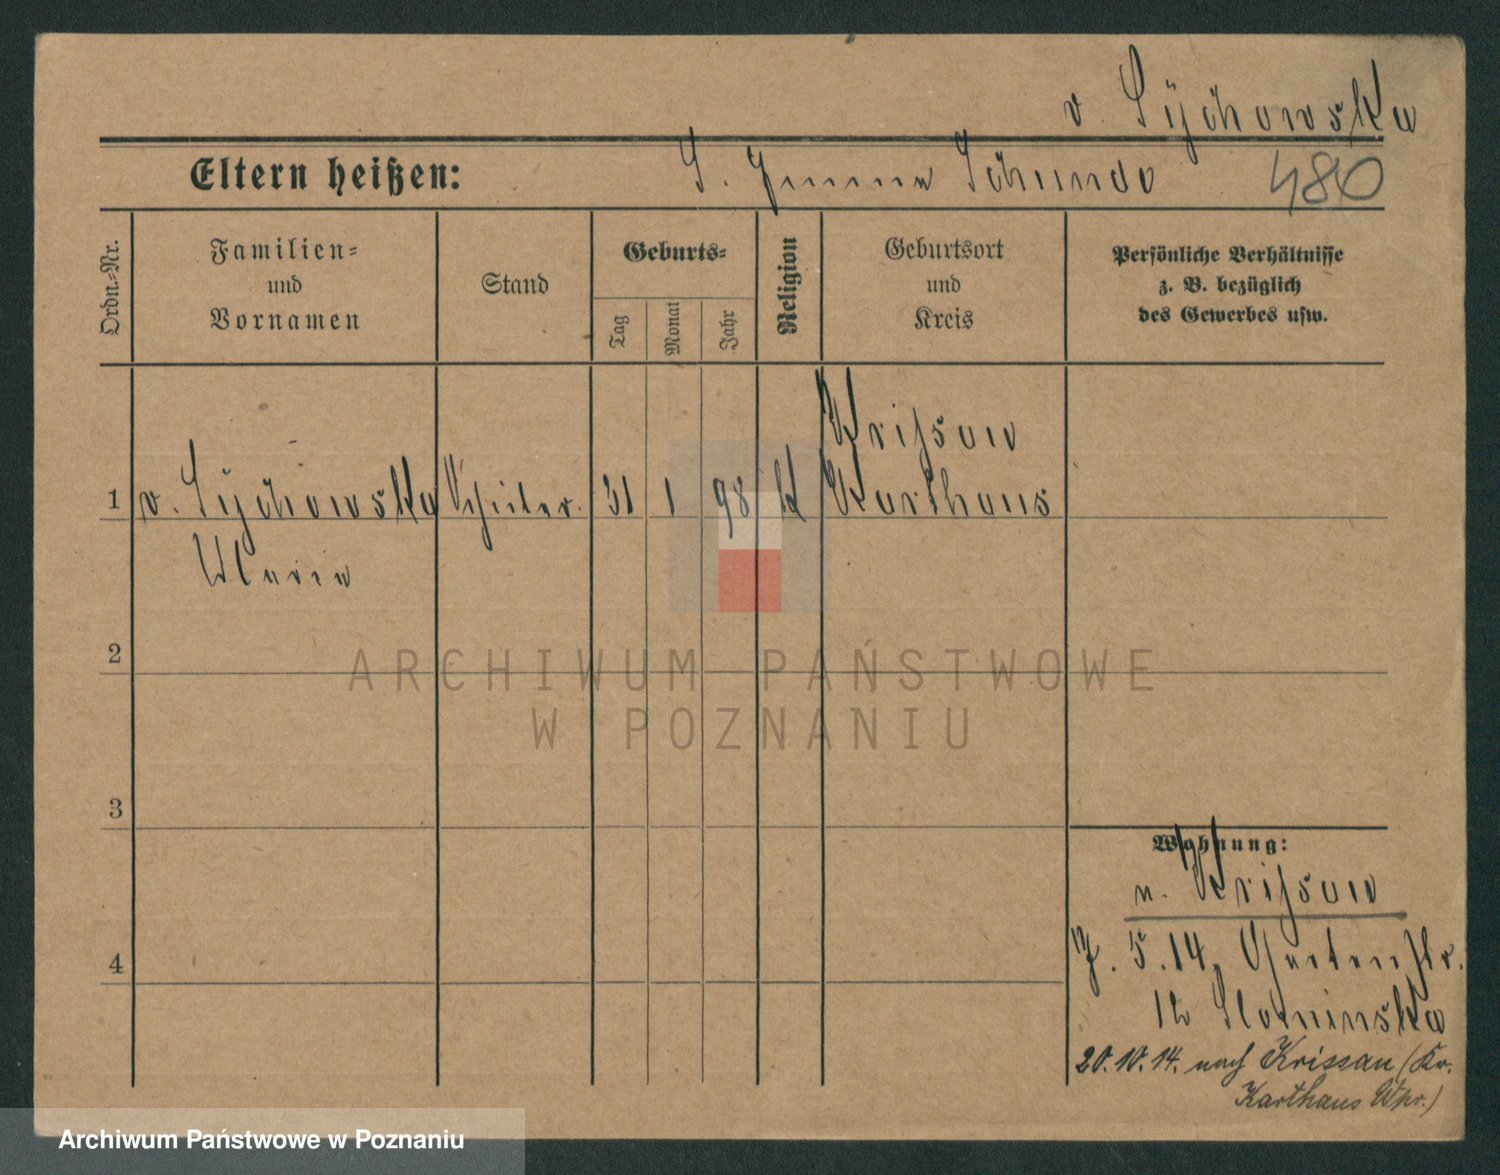 v. Sÿchowska
Eltern heißen: 480
Ordn.-Nr.
Familien-
und
Vornamen
Stand
Geburts-
Tag
Monat
Jahr
Religion
Geburtsort
und
Kreis
Persönliche Verhältnisse
z. B. bezüglich
des Gewerbes usw.
Krissau
1 v. Sÿchowska 31 1 98 K Karthaus
Maria
2
3
4
Wohnung:
n. Krissau
7. 5. 14. Gartenstr.
12 Slominska
20.10.14. nach Krissau (Kr.
Karthaus Wpr.)
ARCHIWUM PAŃSTWOWE
W POZNANIU
Archiwum Państwowe w Poznaniu